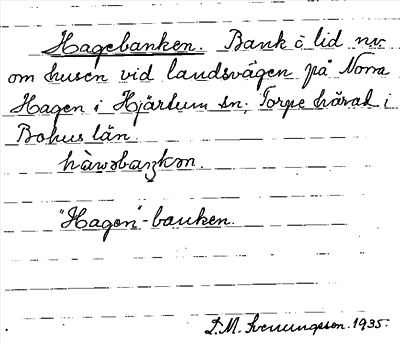 Hagebanken. Bank o lid nv
om husen vid landsvägen på Norra
Hagen i Hjärtum sn; Torpe härad i
Bohus län.
"Hagen"-banken.
D. M. Svenungsson. 1935.